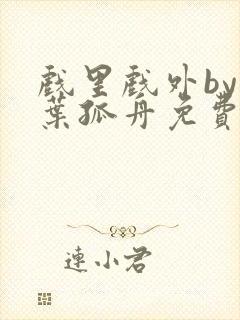 戲里戲外by
葉孤舟免費
連小君